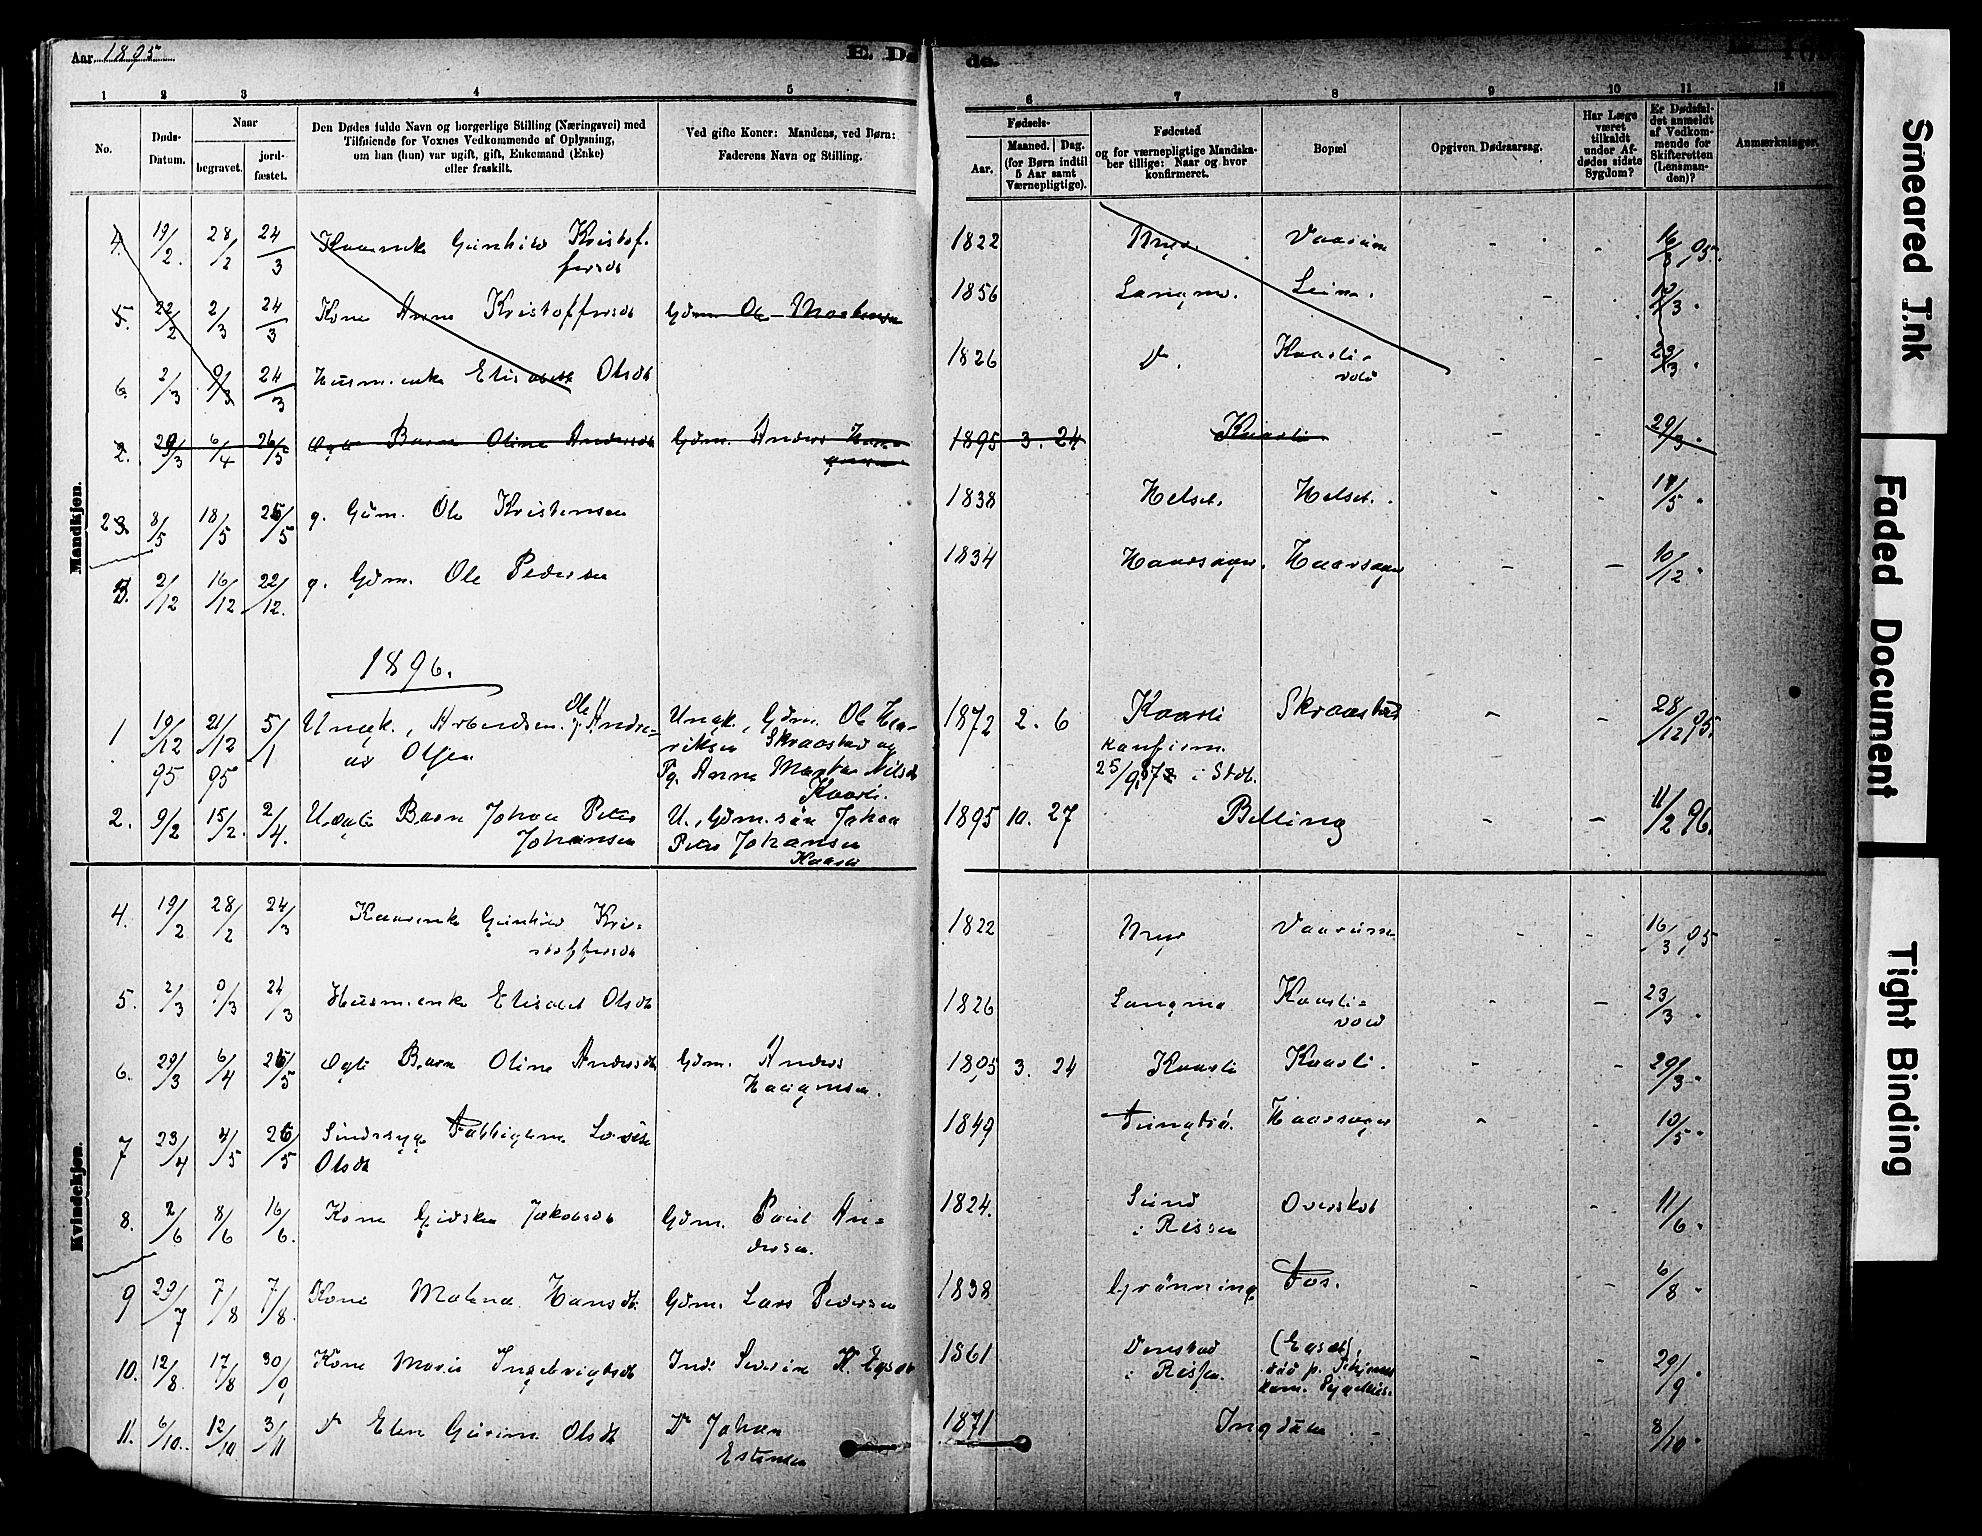 Aar 1895
E. Dø
de.
1 2 3 4 5 6 7 8 9 10 11 12
No.
Døds-
Datum.
Naar
begravet.
jord-
fæstet.
Den Dødes fulde Navn og borgerlige Stilling (Næringsvei) med
Tilføiende for Voxnes Vedkommende af Oplysning,
om han (hun) var ugift, gift, Enkemand (Enke)
eller fraskilt.
Ved gifte Koner: Mandens, ved Børn:
Faderens Navn og Stilling.
Fødsels-
Aar.
Maaned. Dag.
(for Børn indtil
5 Aar samt
Værnepligtige).
Fødested
og for værnepligtige Mandska-
ber tillige: Naar og hvor
konfirmeret.
Bopæl
Opgiven Dødsaarsag.
Har Læge
været
tilkaldt
under Af-
dødes sidste
Sygdom?
Er Dødsfal-
det anmeldt
af Vedkom-
mende for
Skifteretten
(Lensman-
den)?
Anmærkninger.
Mandkjøn.
4. 19/2. 28/2 24/3 Kaarenke Gunhild Kristof-
fersdt 1822 Myr. Vaarum - - 16/3, 95.
5. 22/2 2/3 24/3 Kone Anna Kristoffersdt Gdm. Ole 1856 Langm. Leira. - 12/3 "
6 2/3 9/3 24/3 Husmenke Elisabeth Olsdt 1826 D. Kaarli-
vold - - 23/3 "
2. 29/3 6/4 26/5 Ægte Barn Oline Andersdt Gdm. Anders Haa-
gensen 1895 3. 24 Kaarli 29/3 "
2 8/5 18/5 26/5 g. Gdm. Ole Kristensen 1838 Helset. Helset. - - 14/5 "
3. 2/12 16/12 22/12. g. Gdm. Ole Pedersen 1834 Haarsager. Haarsager - - 10/12 "
1896.
1 19/12 95 21/12 95 5/1 Uægt., Arbeidsm. Ole Andre-
as Olsen
Uægt., Gdm. Ole Hen-
riksen Skraastad og
Pg. Anna Marta Nilsdt
Kaarli.
1872 2. 6 Kaarli
konfirm.
25/9 87 i Stdb.
Skraastad - - 28/12 95.
2. 9/2 15/2. 2/4. Uægte Barn Johan Peter
Johansen
U., Gdm.søn Johan
Peter Johansen
Kaarli
1895 10. 27 Belling - - 11/2 96.
Kvindekjøn.
4. 19/2 28/2 24/3 Kaarenke Gunhild Kri-
stoffersdt 1822 Myr Vaarum - - 16/3, 95
5. 2/3 9/3 24/3 Husmenke Elisabet Olsdt 1826 Langmo Kaarli-
vold - - 23/3 "
6. 29/3 6/4 26/5 Ægte Barn Oline Andersdt Gdm. Anders
Haagensen. 1895 3. 24 Kaarli Kaarli. - - 29/3 "
7 23/4 4/5 26/5 Sindssyge Fattiglem Lovise
Olsdt 1849 Haarsager - - 10/5 "
8. 2/6 8/6 16/6. Kone Gidsken Jakobsdt Gdm. Paul An-
dersen. 1824. Sund
i Rissen Overskot - - 11/6 "
9 29/7 7/8 7/8. Kone Malena Hansdt Gdm. Lars Pedersen 1838 Grønning Fos. - - 6/8 "
10. 12/8. 17/8 30/9 Kone Maria Ingebrigtsdt Ind. Severin K. Egsæt 1861 Denstad
i Rissen. (Egsæt),
død p.
kom. Sygehus. - - 29/9 "
11. 6/10. 12/10 3/11 D Elen Gurine Olsdt D. Johan
Estensen 1871 Ingdalen - - 8/10 "
Smeared Ink
Faded Document
Tight Binding